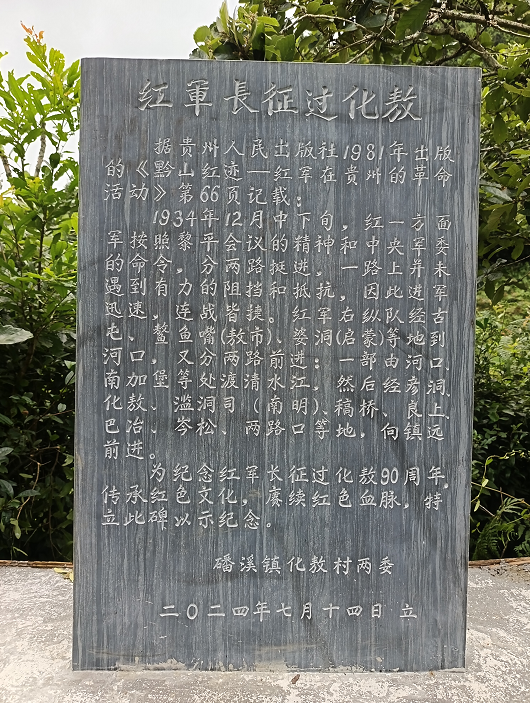 红軍長征过化敖
据贵州人民出版社1981年出版
的《黔山红迹一红军在贵州的革命
活动》第66页记载：
1934年12月中下旬，红一方面
军按照黎平会议的精神，和中央军委
的命令，分两路挺进，一路上并未
遇到有力的阻挡和抵抗，因此进军
迅速，连战皆捷。红军右纵队经古
屯、鳌鱼嘴(敖市)、婆洞(启蒙)等地到
河口又分两路前进：一部由河口、
南加堡等处渡清水江，然后经彦洞、
化敖、滥洞司(南明)、稿桥、良上、
巴冶、岑松、两路口等地，向镇远
前进。
为纪念红军长征过化敖90周年，
传承红色文化，赓续红色血脉，特
立此碑以示纪念。
磻溪镇化敖村两委
二〇二四年七月十四日立